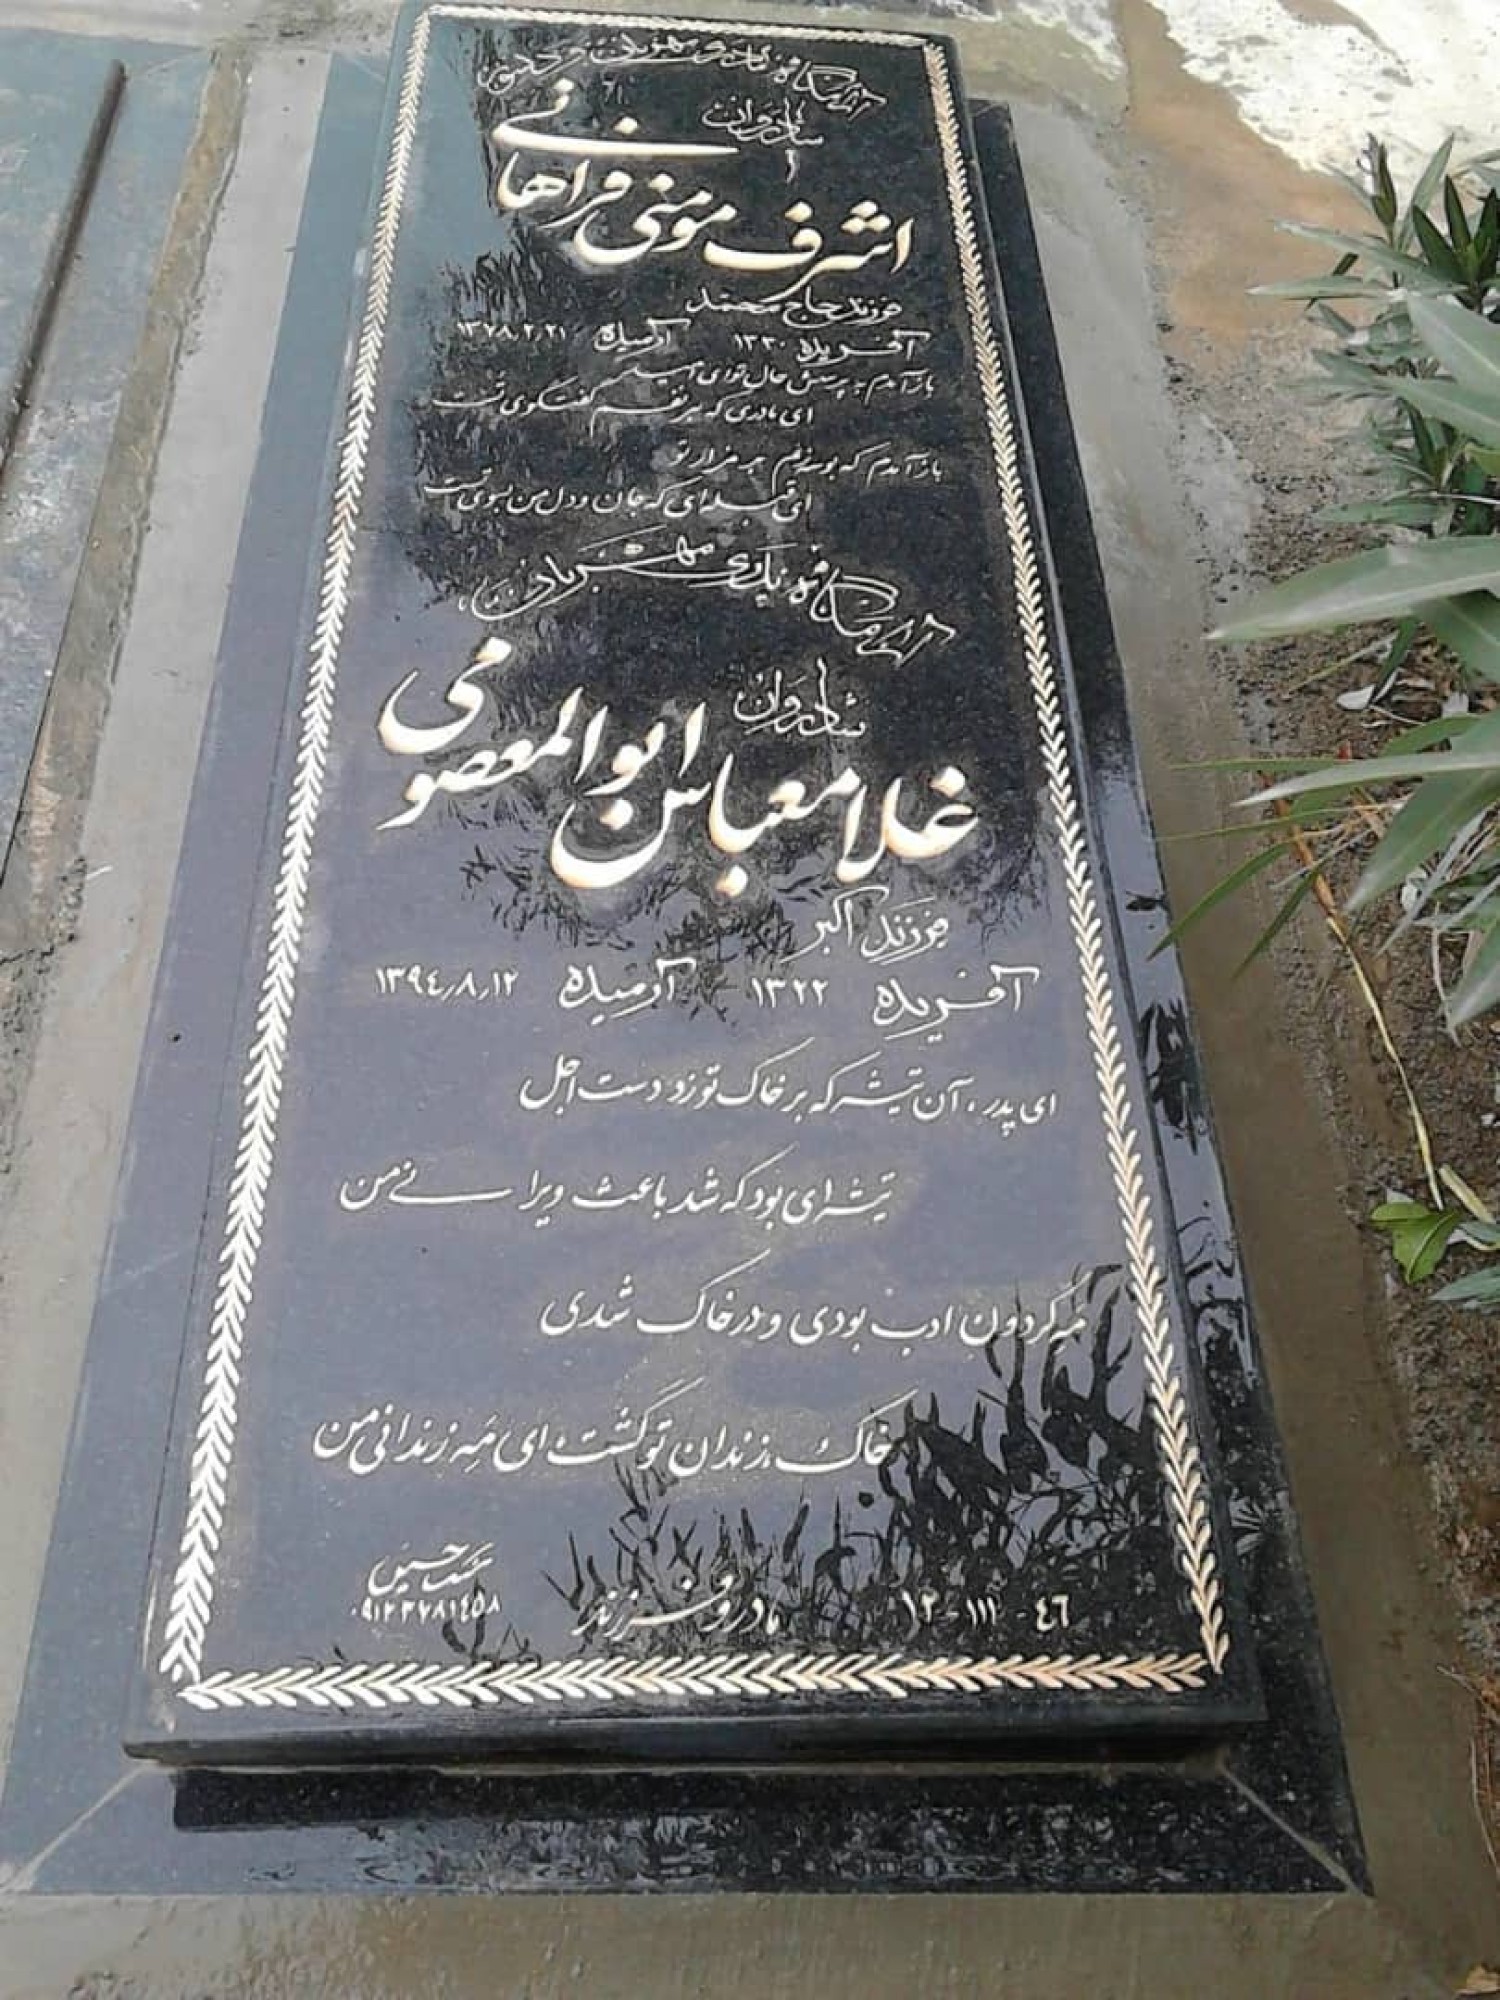 آرامگاه مادری مهربان و دلسوز
شادروان
اشرف مومنی فراهانی
فرزند حاج محمد
آفریده ۱۳۳۰ آرمیده ۱۳۷۸٫۲٫۲۱
بازآمدم به پرسش حال تو ای امید
ای مادری که سرنفسم گفتگوی تست
بازآمدم که بوسه زنم بر مزار تو
ای قبله ای که جان و دل من بسوی تست
آرامگاه پدری مهربان
شادروان
غلامعباس ابوالمعصومی
فرزند اکبر
آفریده ۱۳۲۲ آرمیده ۱۳۹۴٫۸٫۱۲
ای پدر، آن تیشه که بر خاک تو زد دست اجل
تیشه ای بود که شد باعث ویرانی من
مه گردون ادب بودی و در خاک شدی
خاک زندان تو گشت ای مه زندانی من
۱۲-۱۱۱-۴۶ مادر و فرزند
سنگ حسین
۰۹۱۲۳۷۸۱۴۵۸